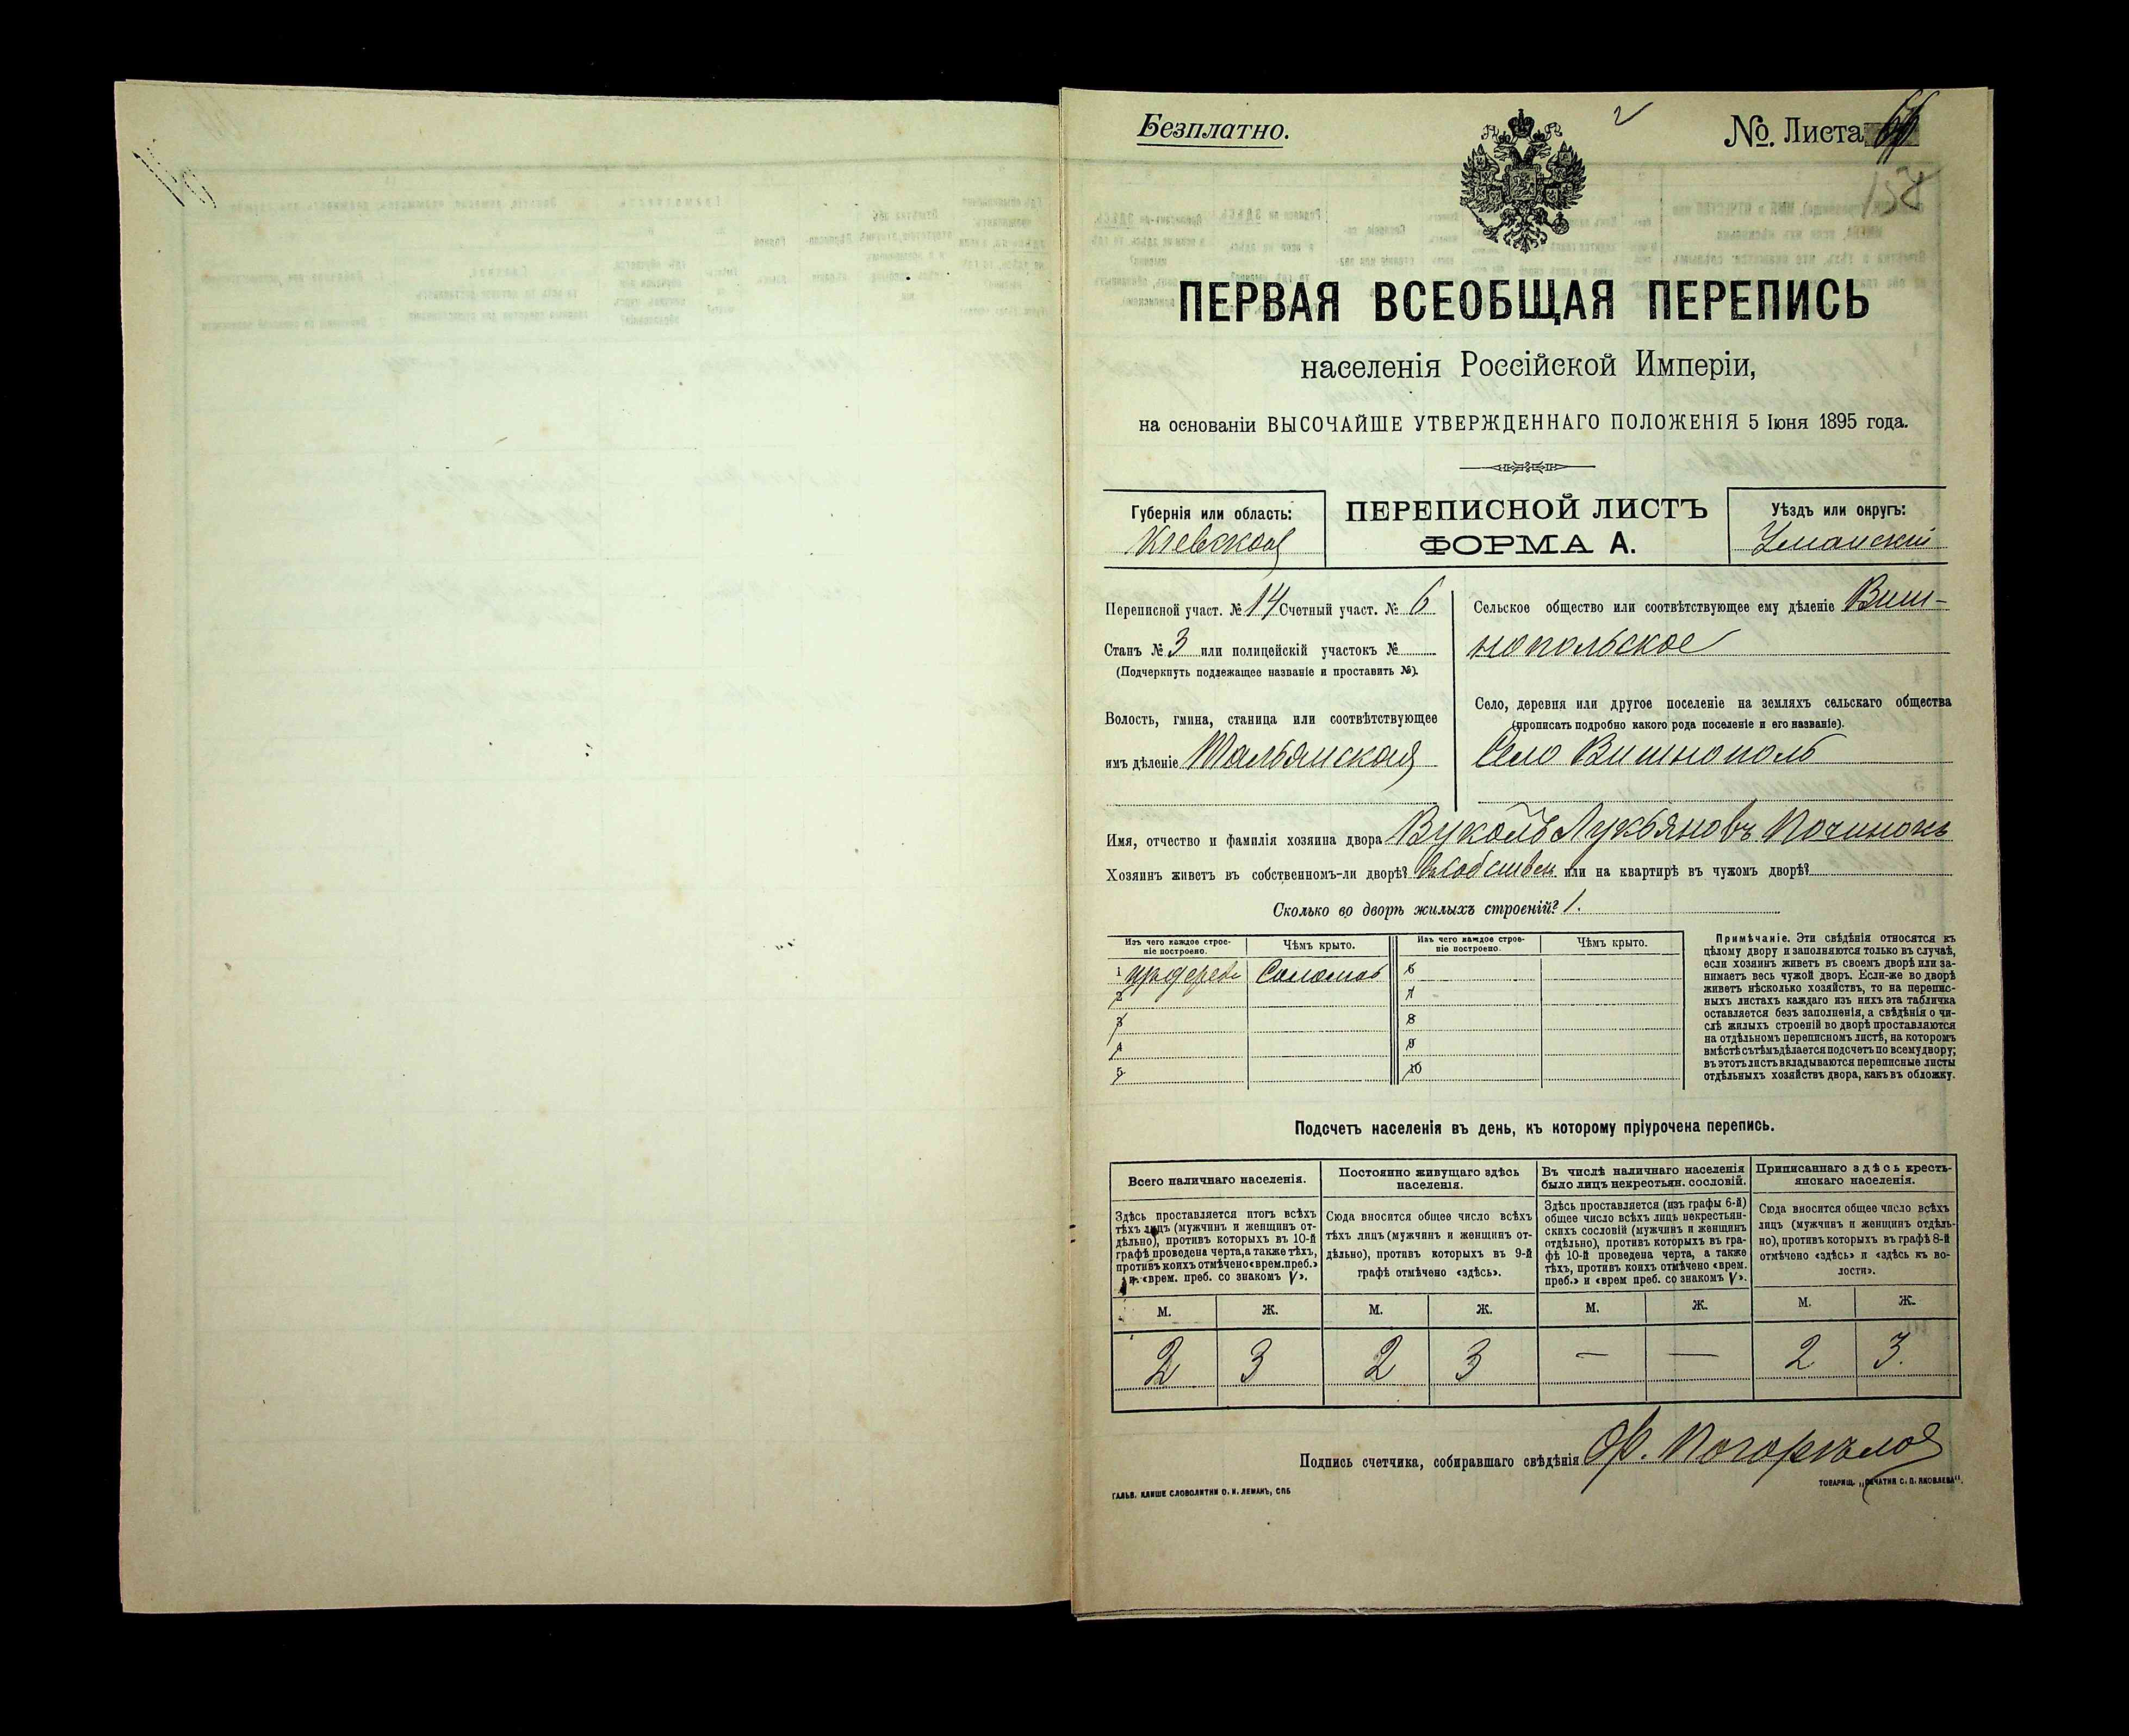 Безплатно.
№. Листа
158
ПЕРВАЯ ВСЕОБЩАЯ ПЕРЕПИСЬ
населенія Россійской Имперіи,
на основаніи ВЫСОЧАЙШЕ УТВЕРЖДЕННАГО ПОЛОЖЕНІЯ 5 Іюня 1895 года.
Губернія или область:
Кіевская
ПЕРЕПИСНОЙ ЛИСТЪ
ФОРМА А.
Уѣздъ или округъ:
Уманскій
Переписной участ. № 14 Счетный участ. № 6
Станъ № 3 или полицейскій участокъ №
(Подчеркнуть подлежащее названіе и проставить №).
Волость, гмина, станица или соотвѣтствующее
имъ дѣленіе Тальянская
Сельское общество или соотвѣтствующее ему дѣленіе Виш-
нопольское
Село, деревня или другое поселеніе на земляхъ сельскаго общества
(прописать подробно какого рода поселеніе и его названіе).
Село Вишнополь
Имя, отчество и фамилія хозяина двора Вуколъ Лукьяновъ Починокъ
Хозяинъ живетъ въ собственномъ-ли дворѣ? Въ собствен или на квартирѣ въ чужомъ дворѣ?
Сколько во дворѣ жилыхъ строеній? 1.
Изъ чего каждое строе-
ніе построено.
Чѣмъ крыто.
Изъ чего каждое строе-
ніе построено.
Чѣмъ крыто.
1 Изъ дерева Соломою 6
2 7
3 8
4 9
5 10
Примѣчаніе. Эти свѣдѣнія относятся къ
цѣлому двору и заполняются только въ случаѣ,
если хозяинъ живетъ въ своемъ дворѣ или за-
нимаетъ весь чужой дворъ. Если-же во дворѣ
живетъ нѣсколько хозяйствъ, то на перепис-
ныхъ листахъ каждаго изъ нихъ эта табличка
оставляется безъ заполненія, а свѣдѣнія о чи-
слѣ жилыхъ строеній во дворѣ проставляются
на отдѣльномъ переписномъ листѣ, на которомъ
вмѣстѣ съ тѣмъ дѣлается подсчетъ по всему двору;
въ этотъ листъ вкладываются переписные листы
отдѣльныхъ хозяйствъ двора, какъ въ обложку.
Подсчетъ населенія въ день, къ которому пріурочена перепись.
Всего наличнаго населенія.
Здѣсь проставляется итогъ всѣхъ
тѣхъ лицъ (мужчинъ и женщинъ от-
дѣльно), противъ которыхъ въ 10-й
графѣ проведена черта, а также тѣхъ,
противъ коихъ отмѣчено «врем. преб.»
и «врем. преб. со знакомъ V».
Постоянно живущаго здѣсь
населенія.
Сюда вносится общее число всѣхъ
тѣхъ лицъ (мужчинъ и женщинъ от-
дѣльно), противъ которыхъ въ 9-й
графѣ отмѣчено «здѣсь».
Въ числѣ наличнаго населенія
было лицъ некрестьян. сословій.
Здѣсь проставляется (изъ графы 6-й)
общее число всѣхъ лицъ некрестьян-
скихъ сословій (мужчинъ и женщинъ
отдѣльно), противъ которыхъ въ гра-
фѣ 10-й проведена черта, а также
тѣхъ, противъ коихъ отмѣчено «врем.
преб.» и «врем преб. со знакомъ V».
Приписаннаго здѣсь кресть-
янскаго населенія.
Сюда вносится общее число всѣхъ
лицъ (мужчинъ и женщинъ отдѣль-
но), противъ которыхъ въ графѣ 8-й
отмѣчено «здѣсь» и «здѣсь къ во-
лости».
М. Ж. М. Ж. М. Ж. М. Ж.
2 3 2 3 — — 2 3.
Подпись счетчика, собиравшаго свѣдѣнія
ГАЛЬВ. КЛИШЕ СЛОВОЛИТНИ О. И. ЛЕМАНЪ, СПБ
ТОВАРИЩ. „ПЕЧАТНЯ С. П. ЯКОВЛЕВА".